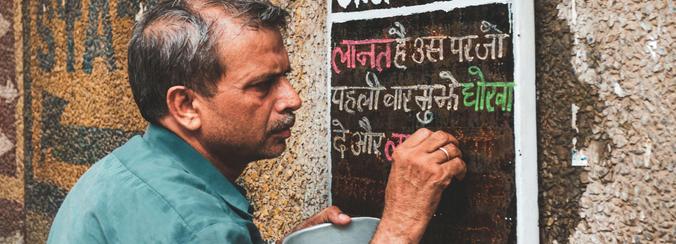 STA
लानत है उस पर जो
पहली बार मुझे धोखा
दे और